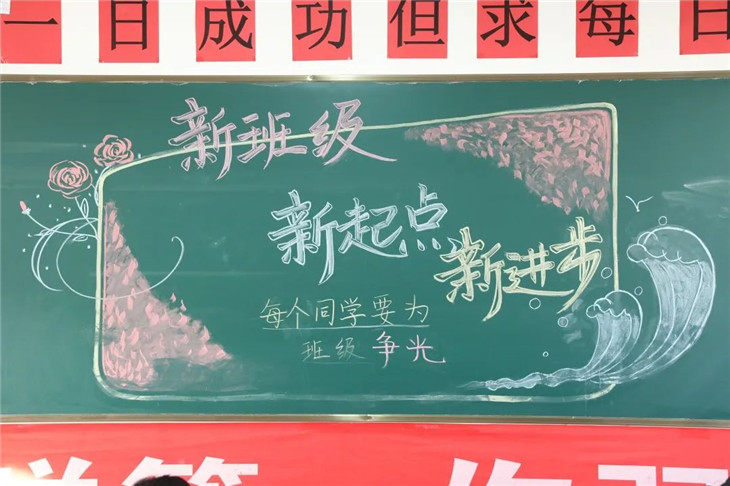 一日成功但求每日
新班级
新起点
新进步
每个同学要为
班级争光